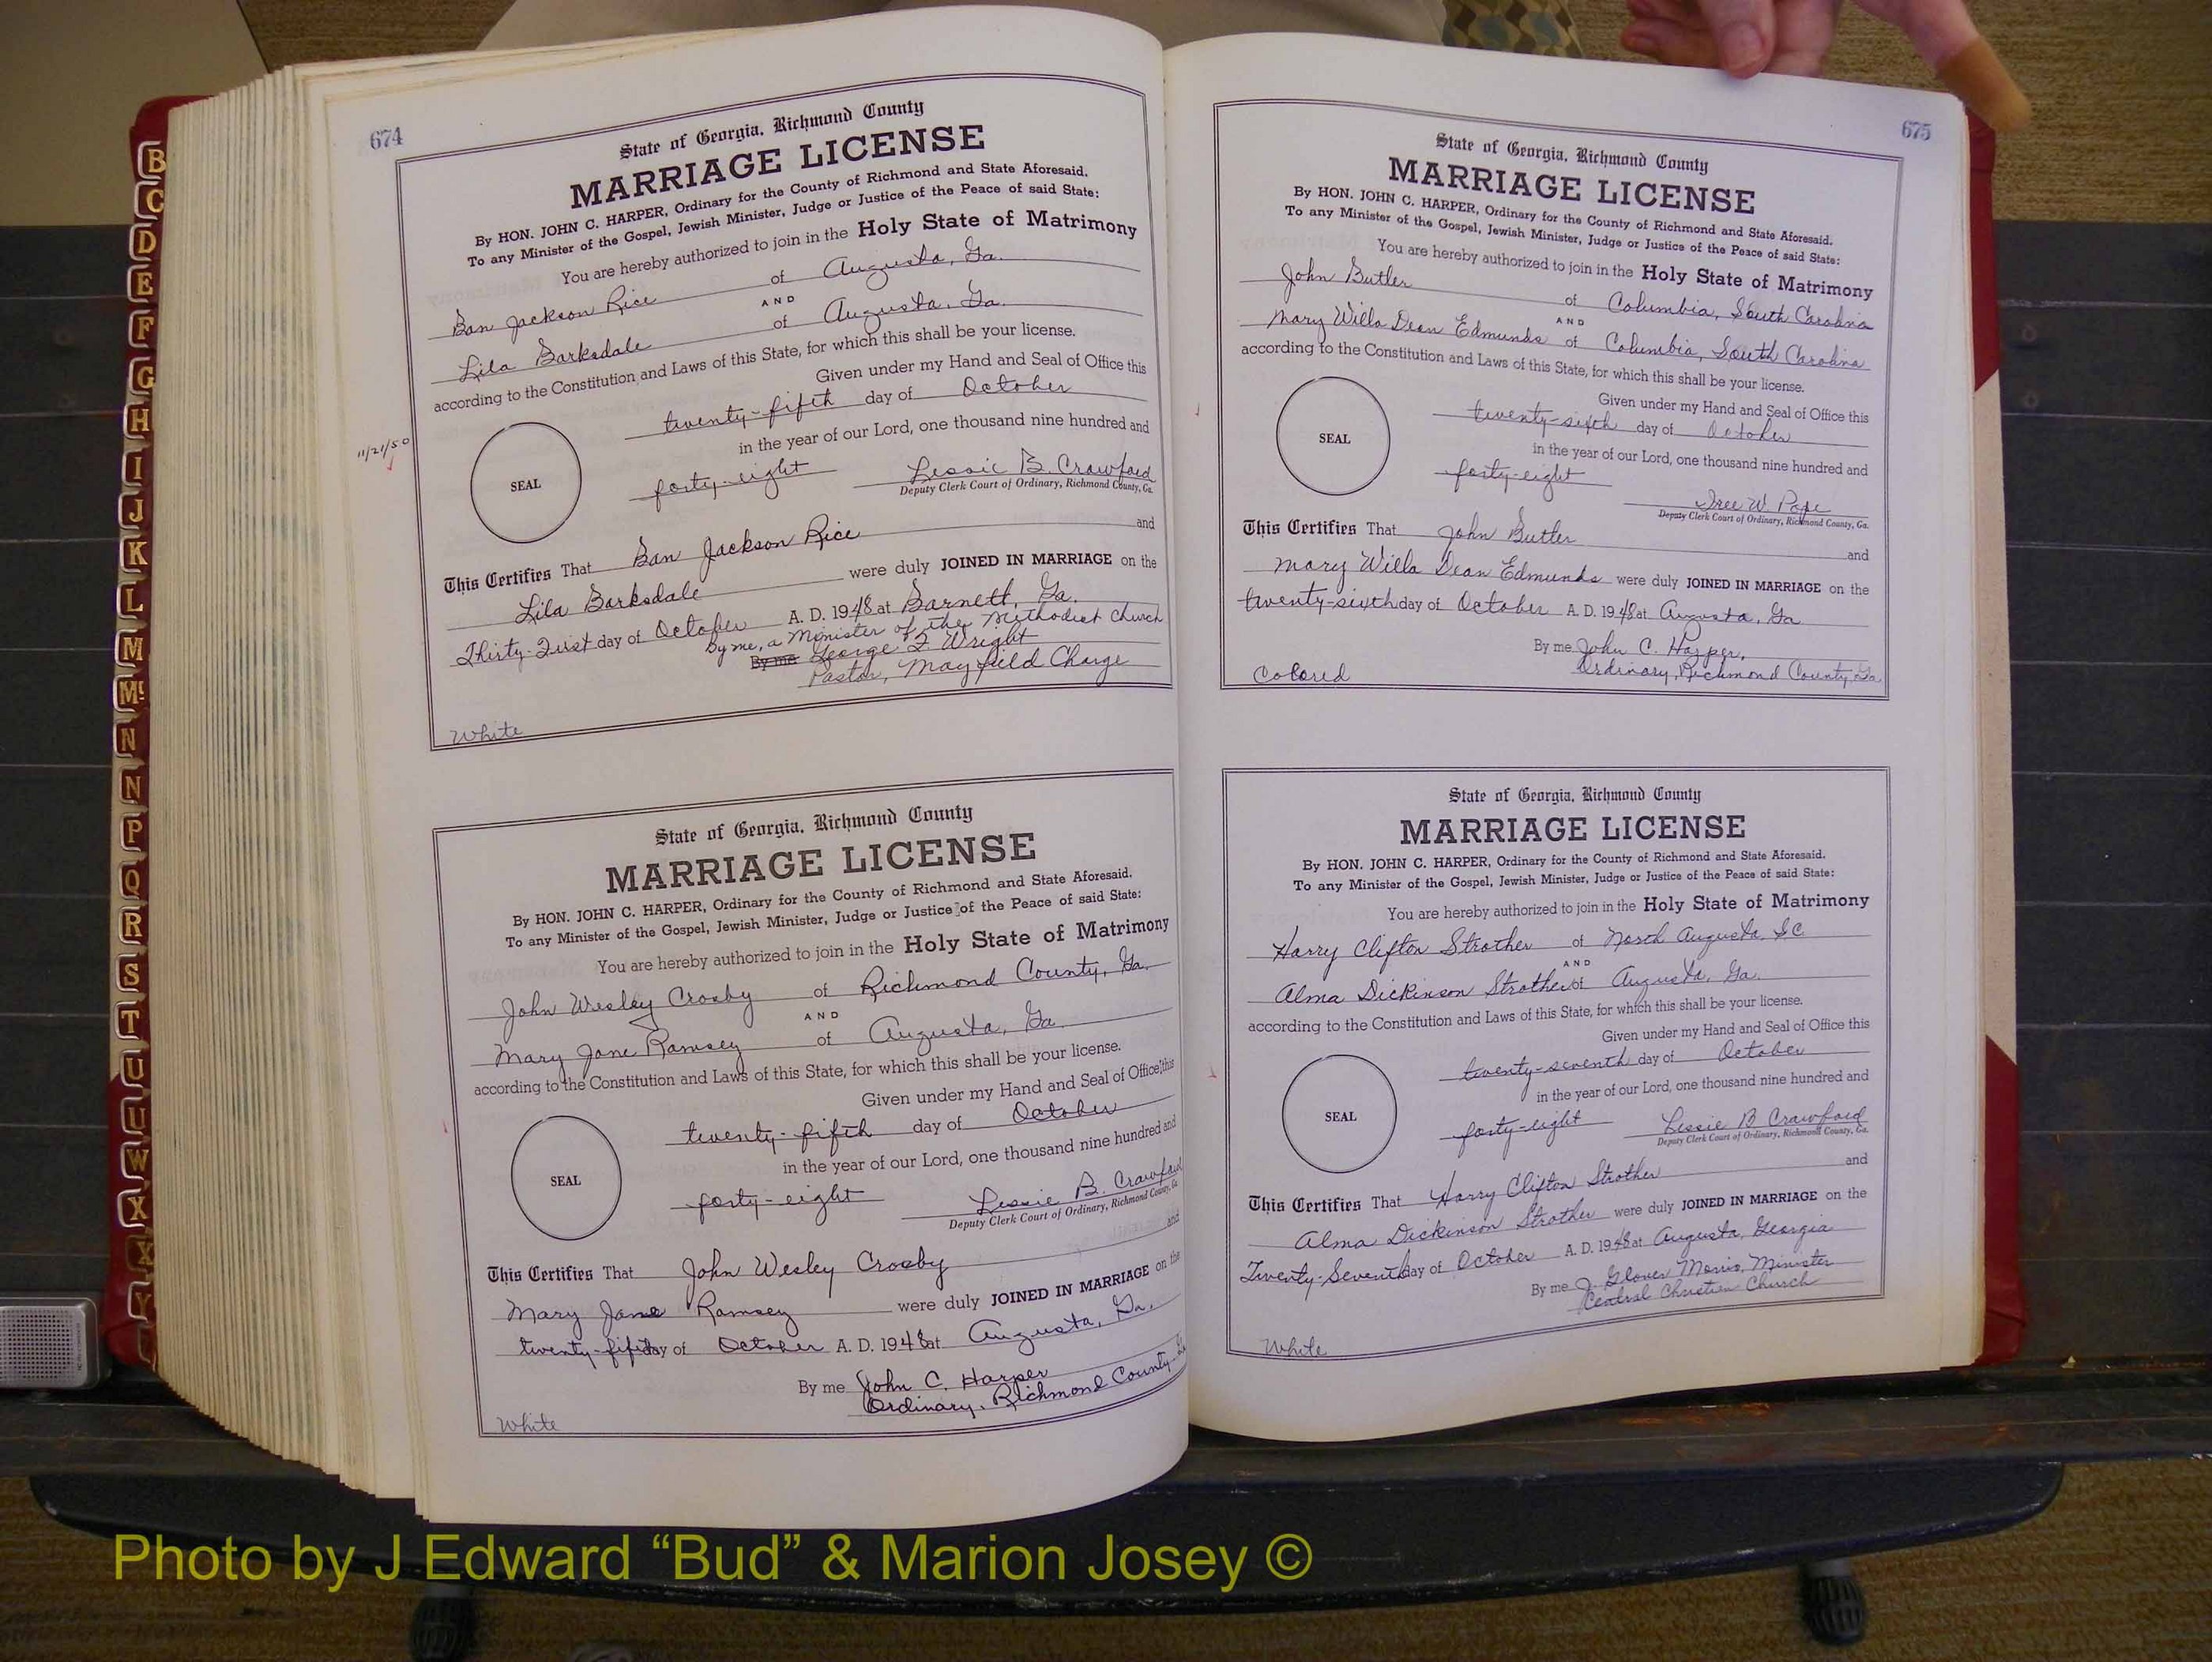 B
C
D
E
F
G
H
I
J
K
L
M
Mc
N
N
P
Q
R
S
T
U
U
W
X
X
Y
674
State of Georgia, Richmond County
MARRIAGE LICENSE
By HON. JOHN C. HARPER, Ordinary for the County of Richmond and State Aforesaid.
To any Minister of the Gospel, Jewish Minister, Judge or Justice of the Peace of said State:
You are hereby authorized to join in the Holy State of Matrimony
Ban Jackson Rice of Augusta, Ga.
AND
Lila Barksdale of Augusta, Ga.
according to the Constitution and Laws of this State, for which this shall be your license.
Given under my Hand and Seal of Office this
twenty-fifth day of October
in the year of our Lord, one thousand nine hundred and
11/21/50
forty-eight Lessie B. Crawford
SEAL
Deputy Clerk Court of Ordinary, Richmond County, Ga.
This Certifies That Ban Jackson Rice and
Lila Barksdale were duly JOINED IN MARRIAGE on the
Thirty-First day of October A. D. 1948 at Barnett, Ga.
By me, a Minister of the Methodist Church
By me George F. Wright
Pastor, Mayfield Charge
White
State of Georgia, Richmond County
MARRIAGE LICENSE
By HON. JOHN C. HARPER, Ordinary for the County of Richmond and State Aforesaid.
To any Minister of the Gospel, Jewish Minister, Judge or Justice of the Peace of said State:
You are hereby authorized to join in the Holy State of Matrimony
John Wesley Crosby of Richmond County, Ga.
AND
Mary Jane Ramsey of Augusta, Ga.
according to the Constitution and Laws of this State, for which this shall be your license.
Given under my Hand and Seal of Office this
twenty-fifth day of October
in the year of our Lord, one thousand nine hundred and
SEAL
forty-eight Lessie B. Crawford
Deputy Clerk Court of Ordinary, Richmond County, Ga
This Certifies That John Wesley Crosby and
Mary Jane Ramsey were duly JOINED IN MARRIAGE on the
twenty-fifth day of October A. D. 1948 at Augusta, Ga.
By me John C. Harper
Ordinary, Richmond County, Ga
White
675
State of Georgia, Richmond County
MARRIAGE LICENSE
By HON. JOHN C. HARPER, Ordinary for the County of Richmond and State Aforesaid.
To any Minister of the Gospel, Jewish Minister, Judge or Justice of the Peace of said State:
You are hereby authorized to join in the Holy State of Matrimony
John Butler of Columbia, South Carolina
AND
Mary Willa Dean Edmunds of Columbia, South Carolina
according to the Constitution and Laws of this State, for which this shall be your license.
Given under my Hand and Seal of Office this
twenty-sixth day of October
SEAL
in the year of our Lord, one thousand nine hundred and
forty-eight W. Pope
Deputy Clerk Court of Ordinary, Richmond County, Ga.
This Certifies That John Butler and
Mary Willa Dean Edmunds were duly JOINED IN MARRIAGE on the
twenty-sixth day of October A. D. 1948 at Augusta, Ga
By me John C. Harper,
Ordinary, Richmond County, Ga
Colored
State of Georgia, Richmond County
MARRIAGE LICENSE
By HON. JOHN C. HARPER, Ordinary for the County of Richmond and State Aforesaid.
To any Minister of the Gospel, Jewish Minister, Judge or Justice of the Peace of said State:
You are hereby authorized to join in the Holy State of Matrimony
Harry Clifton Strother of North Augusta, S.C
AND
Alma Dickinson Strother of Augusta, Ga.
according to the Constitution and Laws of this State, for which this shall be your license.
Given under my Hand and Seal of Office this
twenty-seventh day of October
in the year of our Lord, one thousand nine hundred and
SEAL
forty-eight Lessie B Crawford
Deputy Clerk Court of Ordinary, Richmond County, Ga.
This Certifies That Harry Clifton Strother and
Alma Dickinson Strother were duly JOINED IN MARRIAGE on the
Twenty-Seventh day of October A. D. 1948 at Augusta, Georgia
By me J. Glover Morris, Minister
Central Christian Church
White
Photo by J Edward “Bud” & Marion Josey ©